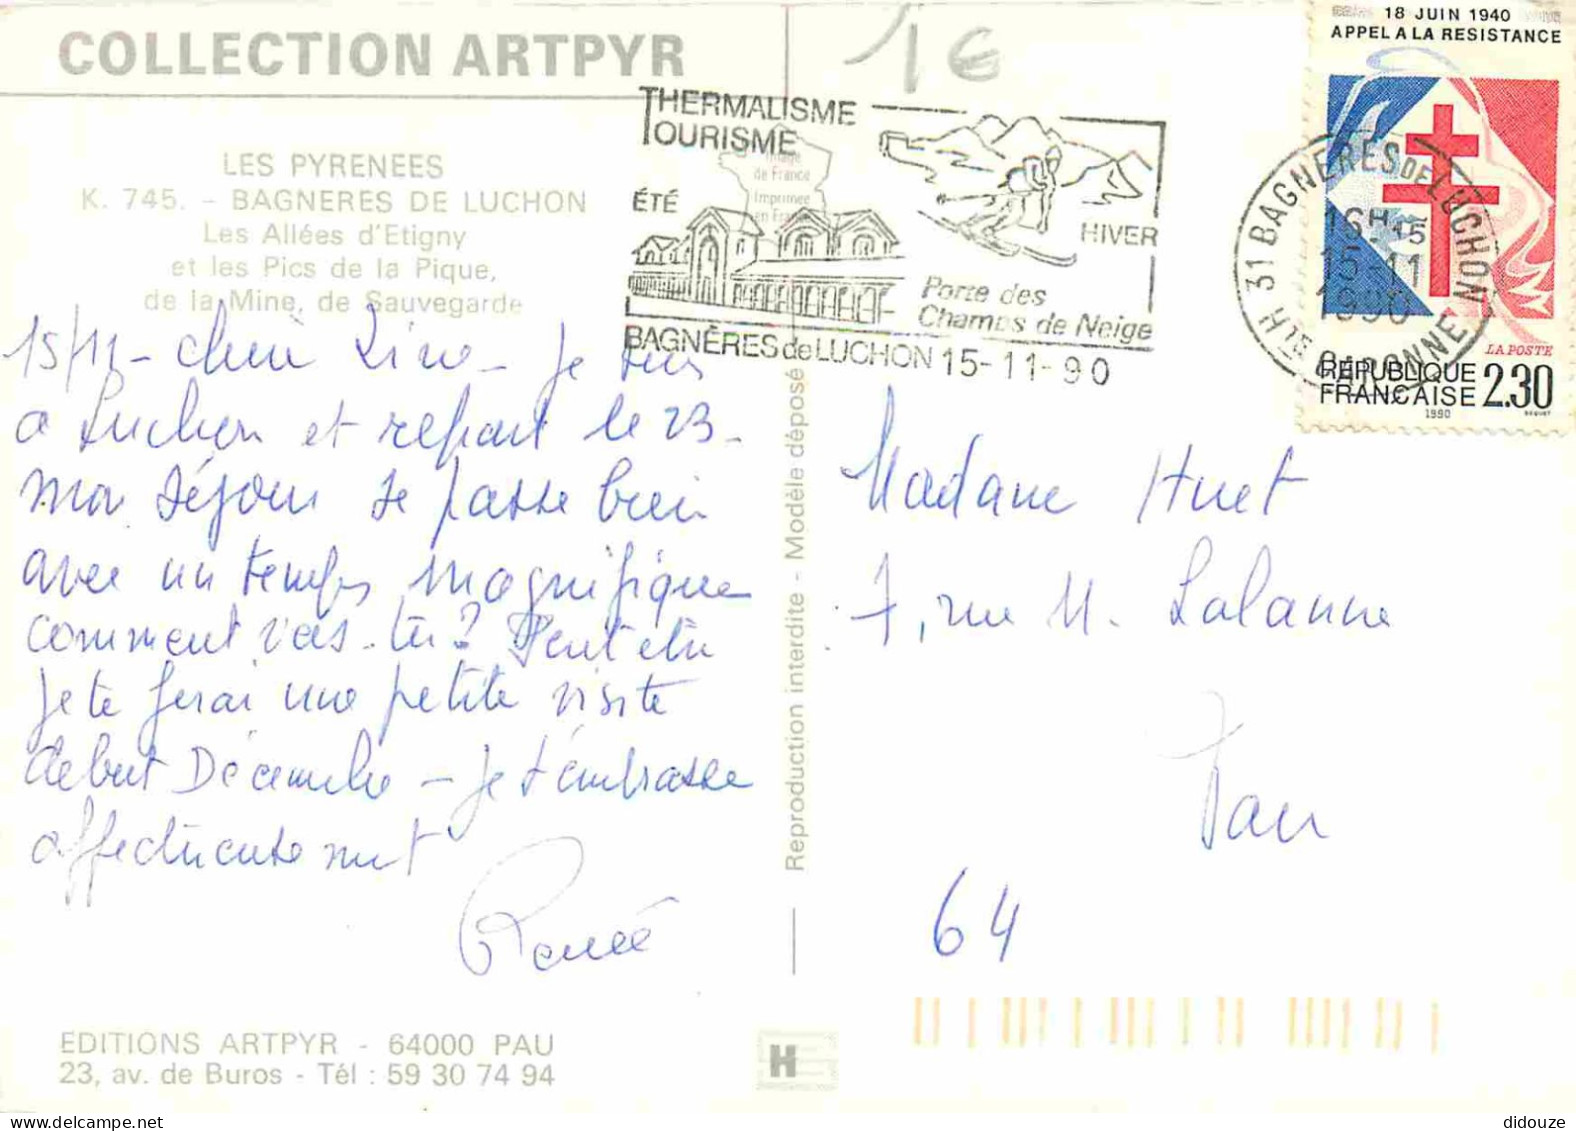 COLLECTION ARTPYR
LES PYRENEES
K. 745. - BAGNERES DE LUCHON
Les Allées d'Etigny
et les Pics de la Pique,
de la Mine, de Sauvegarde
15/11 - Chère Line - Je suis
a Luchon et repart le 23 -
mon séjour se passe bien
avec un temps magnifique
comment vas-tu? Peut etre
je te ferai une petite visite
debut Décembre - je t'embrasse
affectueusement
Renée
EDITIONS ARTPYR - 64000 PAU
23, av. de Buros - Tél : 59 30 74 94
Reproduction interdite - Modèle déposé
Image
de France
Imprimée
en France
H
1€
THERMALISME
TOURISME
ÉTÉ
HIVER
Porte des
Champs de Neige
BAGNÈRES de LUCHON 15-11-90
31 BAGNERES DE LUCHON
16H15
15-11
1990
HTE GARONNE
18 JUIN 1940
APPEL A LA RESISTANCE
LA POSTE
REPUBLIQUE
FRANÇAISE 2.30
1990
Madame Huet
7, rue M. Lalanne
Pau
64
didouze